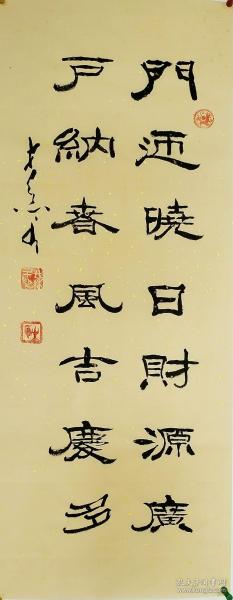 門迎曉日財源廣
戶納春風吉慶多